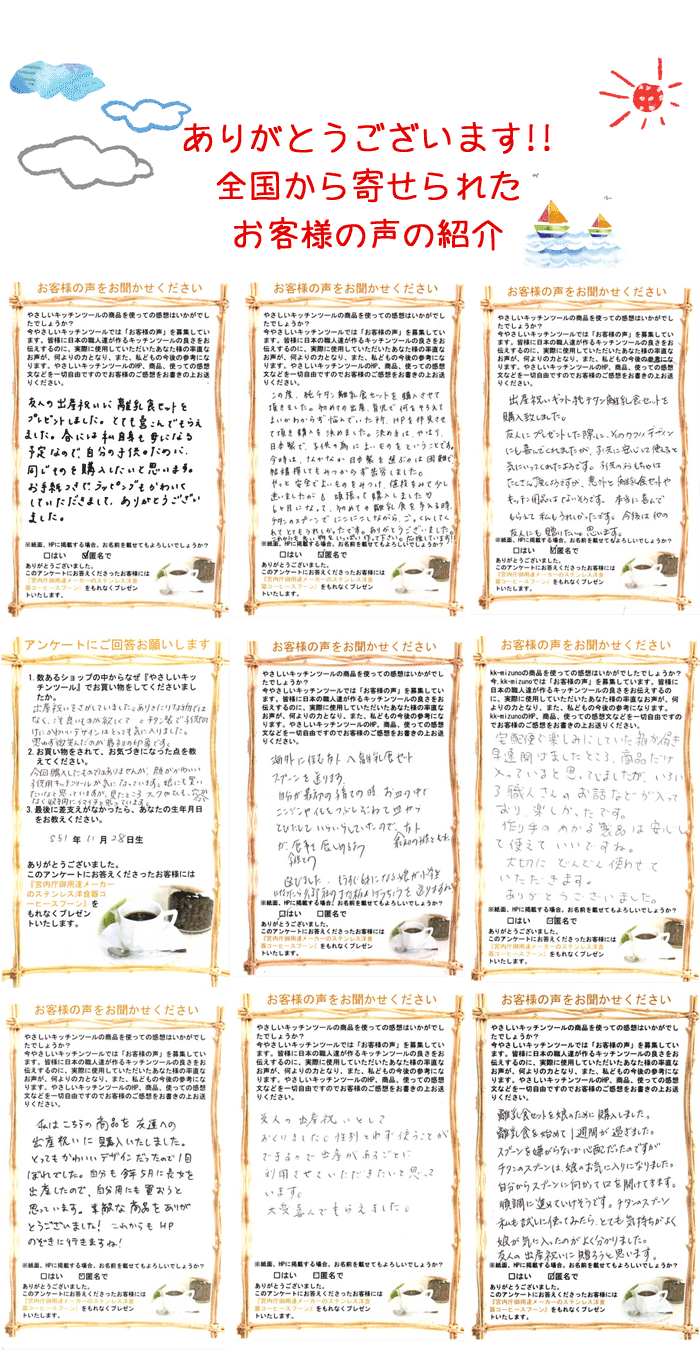 ありがとうございます!!
全国から寄せられた
お客様の声の紹介
お客様の声をお聞かせください
やさしいキッチンツールの商品を使っての感想はいかがでし
たでしょうか?
今やさしいキッチンツールでは「お客様の声」を募集してい
ます。皆様に日本の職人達が作るキッチンツールの良さをお
伝えするのに、実際に使用していただいたあなた様の率直な
お声が、何よりの力となり、また、私どもの今後の参考にな
ります。やさしいキッチンツールのHP、商品、使っての感想
文などを一切自由ですのでお客様のご感想をお書きの上お送
りください。
友人の出産祝いに離乳食セットを
プレゼントしました。とても喜んでもらえ
ました。春には私自身も母になる
予定なので、自分の子供のために、
同じものを購入したいと思います。
お手紙つきで、ラッピングもかわいく
していただきまして、ありがとうござい
ました。
※紙面、HPに掲載する場合、お名前を載せてもよろしいでしょうか?
□はい ☑匿名で
ありがとうございました。
このアンケートにお答えくださったお客様には
『宮内庁御用達メーカーのステンレス洋食
器コーヒースプーン』をもれなくプレゼン
トいたします。
お客様の声をお聞かせください
やさしいキッチンツールの商品を使っての感想はいかがでし
たでしょうか?
今やさしいキッチンツールでは「お客様の声」を募集してい
ます。皆様に日本の職人達が作るキッチンツールの良さをお
伝えするのに、実際に使用していただいたあなた様の率直な
お声が、何よりの力となり、また、私どもの今後の参考にな
ります。やさしいキッチンツールのHP、商品、使っての感想
文などを一切自由ですのでお客様のご感想をお書きの上お送
りください。
この度、純チタン離乳食セットを購入させて
頂きました。初めての出産、育児で何をそろえて
よいかわからず悩んでいた所、HPを拝見させ
て頂き購入を決めました。決め手は、やはり、
日本製で、子供の為に良いものをということです。
※紙面、HPに掲載する場合、お名前を載せてもよろしいでしょうか?
□はい ☑匿名で
ありがとうございました。
このアンケートにお答えくださったお客様には
『宮内庁御用達メーカーのステンレス洋食
器コーヒースプーン』をもれなくプレゼン
トいたします。
お客様の声をお聞かせください
やさしいキッチンツールの商品を使っての感想はいかがでし
たでしょうか?
今やさしいキッチンツールでは「お客様の声」を募集してい
ます。皆様に日本の職人達が作るキッチンツールの良さをお
伝えするのに、実際に使用していただいたあなた様の率直な
お声が、何よりの力となり、また、私どもの今後の参考にな
ります。やさしいキッチンツールのHP、商品、使っての感想
文などを一切自由ですのでお客様のご感想をお書きの上お送
りください。
出産祝いギフト純チタン離乳食セットを
購入致しました。
友人にプレゼントした際に、そのカワイイデザイン
にも喜んでくれましたが、お気に
もらえて私もうれしかったです。今後は他の
友人にも贈りたいと思います。
※紙面、HPに掲載する場合、お名前を載せてもよろしいでしょうか?
□はい ☑匿名で
ありがとうございました。
このアンケートにお答えくださったお客様には
『宮内庁御用達メーカーのステンレス洋食
器コーヒースプーン』をもれなくプレゼン
トいたします。
アンケートにご回答お願いします
1. 数あるショップの中からなぜ『やさしいキッ
チンツール』でお買い物をしてくださいまし
たか。
出産祝いをさがしていました。ありきたりな物では
なく、でも良いものが欲しくて
2. お買い物をされて、お気づきになった点を教
えてください。
3. 最後に差支えがなかったら、あなたの生年月日
をお教えください。
S51年 11月 28日生
ありがとうございました。
このアンケートにお答えくださったお客様には
『宮内庁御用達メーカー
のステンレス洋食器コ
ーヒースプーン』を
もれなくプレゼン
トいたします。
お客様の声をお聞かせください
やさしいキッチンツールの商品を使っての感想はいかがでし
たでしょうか?
今やさしいキッチンツールでは「お客様の声」を募集してい
ます。皆様に日本の職人達が作るキッチンツールの良さをお
伝えするのに、実際に使用していただいたあなた様の率直な
お声が、何よりの力となり、また、私どもの今後の参考にな
ります。やさしいキッチンツールのHP、商品、使っての感想
文などを一切自由ですのでお客様のご感想をお書きの上お送
りください。
海外に住む友人へ離乳食セット
スプーンを送ります。
※紙面、HPに掲載する場合、お名前を載せてもよろしいでしょうか?
☑はい □匿名で
ありがとうございました。
このアンケートにお答えくださったお客様には
『宮内庁御用達メーカーのステンレス洋食
器コーヒースプーン』をもれなくプレゼン
トいたします。
お客様の声をお聞かせください
kk-mizunoの商品を使っての感想はいかがでしたでしょうか?
今、kk-mizunoでは「お客様の声」を募集しています。皆様に
日本の職人達が作るキッチンツールの良さをお伝えするの
に、実際に使用していただいたあなた様の率直なお声が、何
よりの力となり、また、私どもの今後の参考になります。
kk-mizunoのHP、商品、使っての感想文などを一切自由ですの
でお客様のご感想をお書きの上お送りください。
宅配便で楽しみにしていた箱が届き
早速開けましたところ、商品だけ
入っていると思っていましたが、いろいろ
職人さんのお話などが入って
おり、楽しかったです。
作り手のわかる製品は安心し
て使えていいですね。
大切に どんどん使わせて
いただきます。
ありがとうございました。
※紙面、HPに掲載する場合、お名前を載せてもよろしいでしょうか?
□はい ☑匿名で
ありがとうございました。
このアンケートにお答えくださったお客様には
『宮内庁御用達メーカーのステンレス洋食
器コーヒースプーン』をもれなくプレゼン
トいたします。
お客様の声をお聞かせください
やさしいキッチンツールの商品を使っての感想はいかがでし
たでしょうか?
今やさしいキッチンツールでは「お客様の声」を募集してい
ます。皆様に日本の職人達が作るキッチンツールの良さをお
伝えするのに、実際に使用していただいたあなた様の率直な
お声が、何よりの力となり、また、私どもの今後の参考にな
ります。やさしいキッチンツールのHP、商品、使っての感想
文などを一切自由ですのでお客様のご感想をお書きの上お送
りください。
私はこちらの商品を友達への
出産祝いに購入いたしました。
とってもかわいいデザインだったので1目
ぼれでした。自分も今年5月に長女を
出産したので、自分用にも買おうと
思っています。素敵な商品をありが
とうございました! これからもHP
のぞきに行きますね!
※紙面、HPに掲載する場合、お名前を載せてもよろしいでしょうか?
□はい ☑匿名で
ありがとうございました。
このアンケートにお答えくださったお客様には
『宮内庁御用達メーカーのステンレス洋食
器コーヒースプーン』をもれなくプレゼン
トいたします。
お客様の声をお聞かせください
やさしいキッチンツールの商品を使っての感想はいかがでし
たでしょうか?
今やさしいキッチンツールでは「お客様の声」を募集してい
ます。皆様に日本の職人達が作るキッチンツールの良さをお
伝えするのに、実際に使用していただいたあなた様の率直な
お声が、何よりの力となり、また、私どもの今後の参考にな
ります。やさしいキッチンツールのHP、商品、使っての感想
文などを一切自由ですのでお客様のご感想をお書きの上お送
りください。
友人の出産祝いとして
おくりました。性別とわず使うことが
できるので出産があるごとに
利用させていただきたいと思って
います。
大変喜んでもらえました。
※紙面、HPに掲載する場合、お名前を載せてもよろしいでしょうか?
□はい ☑匿名で
ありがとうございました。
このアンケートにお答えくださったお客様には
『宮内庁御用達メーカーのステンレス洋食
器コーヒースプーン』をもれなくプレゼン
トいたします。
お客様の声をお聞かせください
やさしいキッチンツールの商品を使っての感想はいかがでし
たでしょうか?
今やさしいキッチンツールでは「お客様の声」を募集してい
ます。皆様に日本の職人達が作るキッチンツールの良さをお
伝えするのに、実際に使用していただいたあなた様の率直な
お声が、何よりの力となり、また、私どもの今後の参考にな
ります。やさしいキッチンツールのHP、商品、使っての感想
文などを一切自由ですのでお客様のご感想をお書きの上お送
りください。
離乳食セットを娘のために購入しました。
離乳食を始めて1週間が過ぎました。
スプーンを嫌がらないか心配だったのですが
チタンのスプーンは、娘のお気に入りになりました。
自分からスプーンに向かって口を開けてきます。
順調に進めていけそうです。チタンのスプーン
私も試しに使ってみたら、とても気持ちがよく
娘が気に入ったのがよく分かりました。
友人の出産祝いに贈ろうと思います。
※紙面、HPに掲載する場合、お名前を載せてもよろしいでしょうか?
□はい ☑匿名で
ありがとうございました。
このアンケートにお答えくださったお客様には
『宮内庁御用達メーカーのステンレス洋食
器コーヒースプーン』をもれなくプレゼン
トいたします。